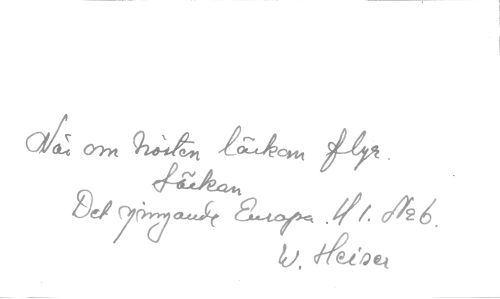 När om hösten lärkan flyr.
Lärkan
Det sjungande Europa. H 1. Nr 6.
W. Heiser